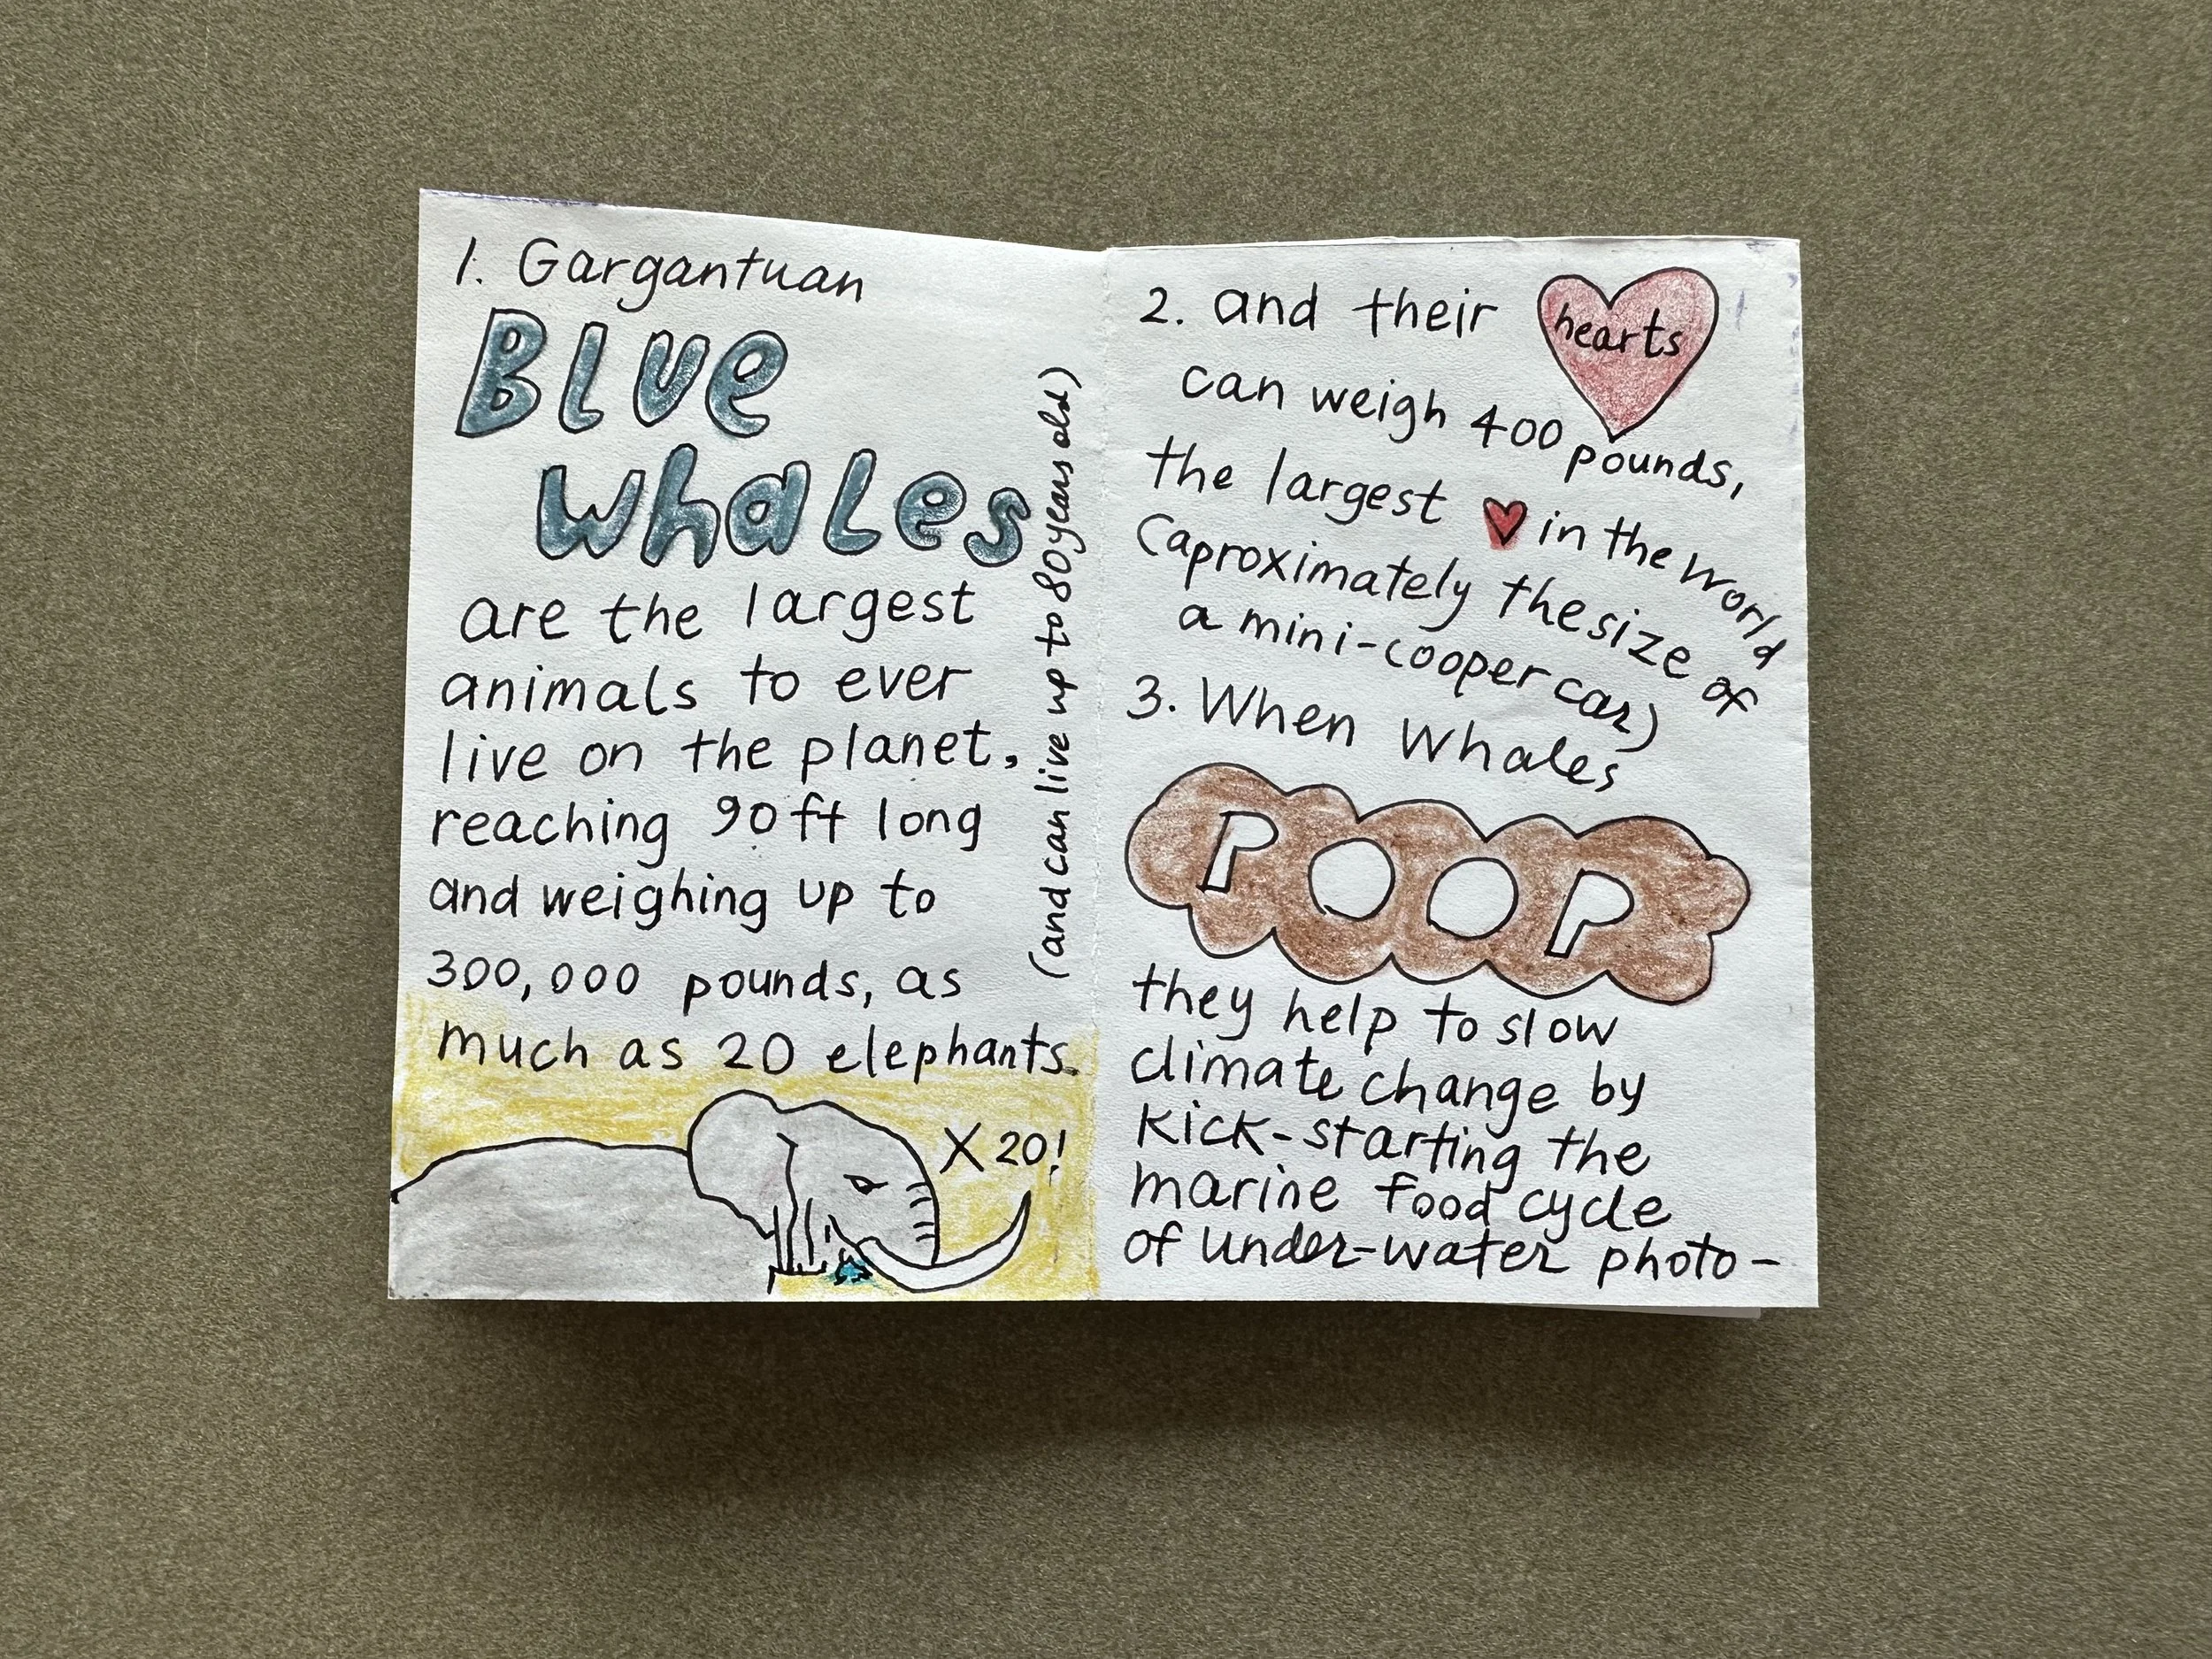 1. Gargantuan
Blue
whales
are the largest
animals to ever
live on the planet,
reaching 90ft long
and weighing up to
300,000 pounds, as
much as 20 elephants.
X 20!
(and can live up to 80 years old)
2. and their hearts
can weigh 400 pounds,
the largest ♥ in the world
(aproximately the size of
a mini-cooper car)
3. When Whales
POOP
they help to slow
climate change by
kick-starting the
marine food cycle
of under-water photo-